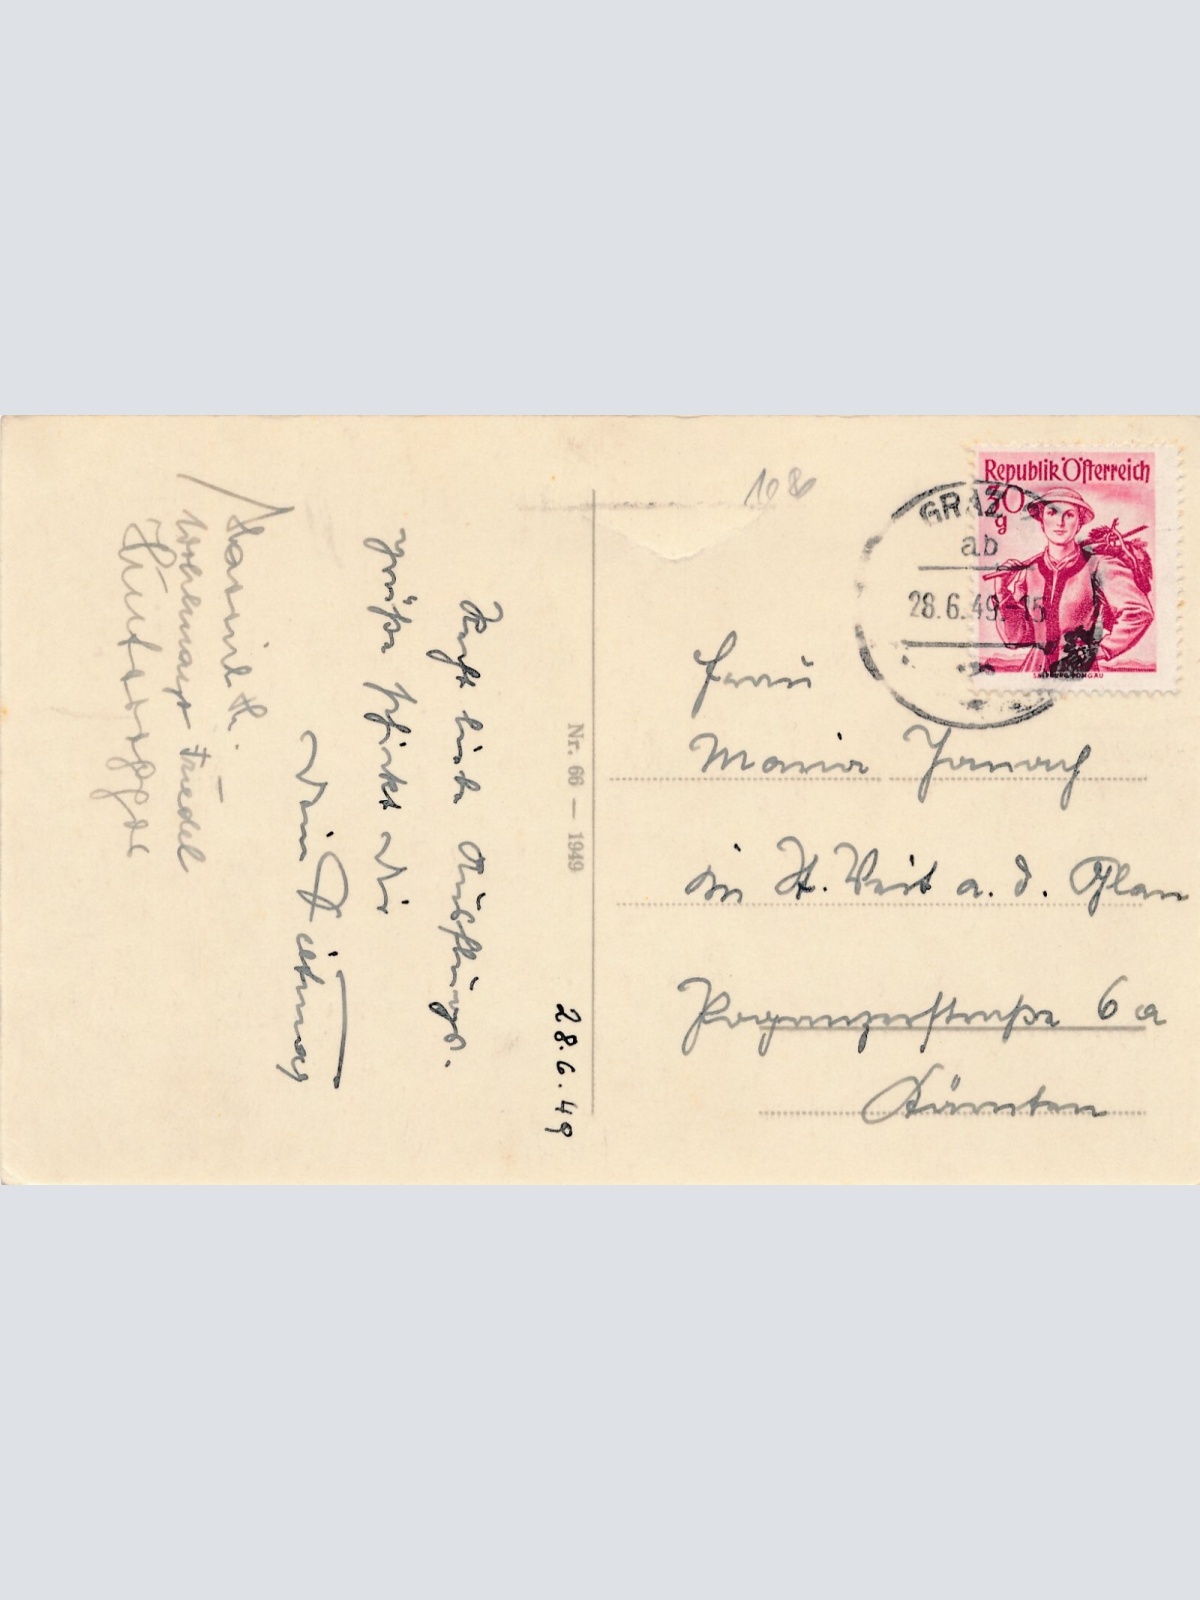 28.6.49
Recht liebe Ausflugs-
grüße schickt Dir
Dein Dietmar
Hannil H.
Friedel
Nr. 66 — 1949
108
Republik Österreich
30
g
SALZBURG, PONGAU
GRAZ
ab
28.6.49.-15
Frau
Maria Janach
in St. Veit a. d. Glan
Poganzerstraße 6a
Kärnten